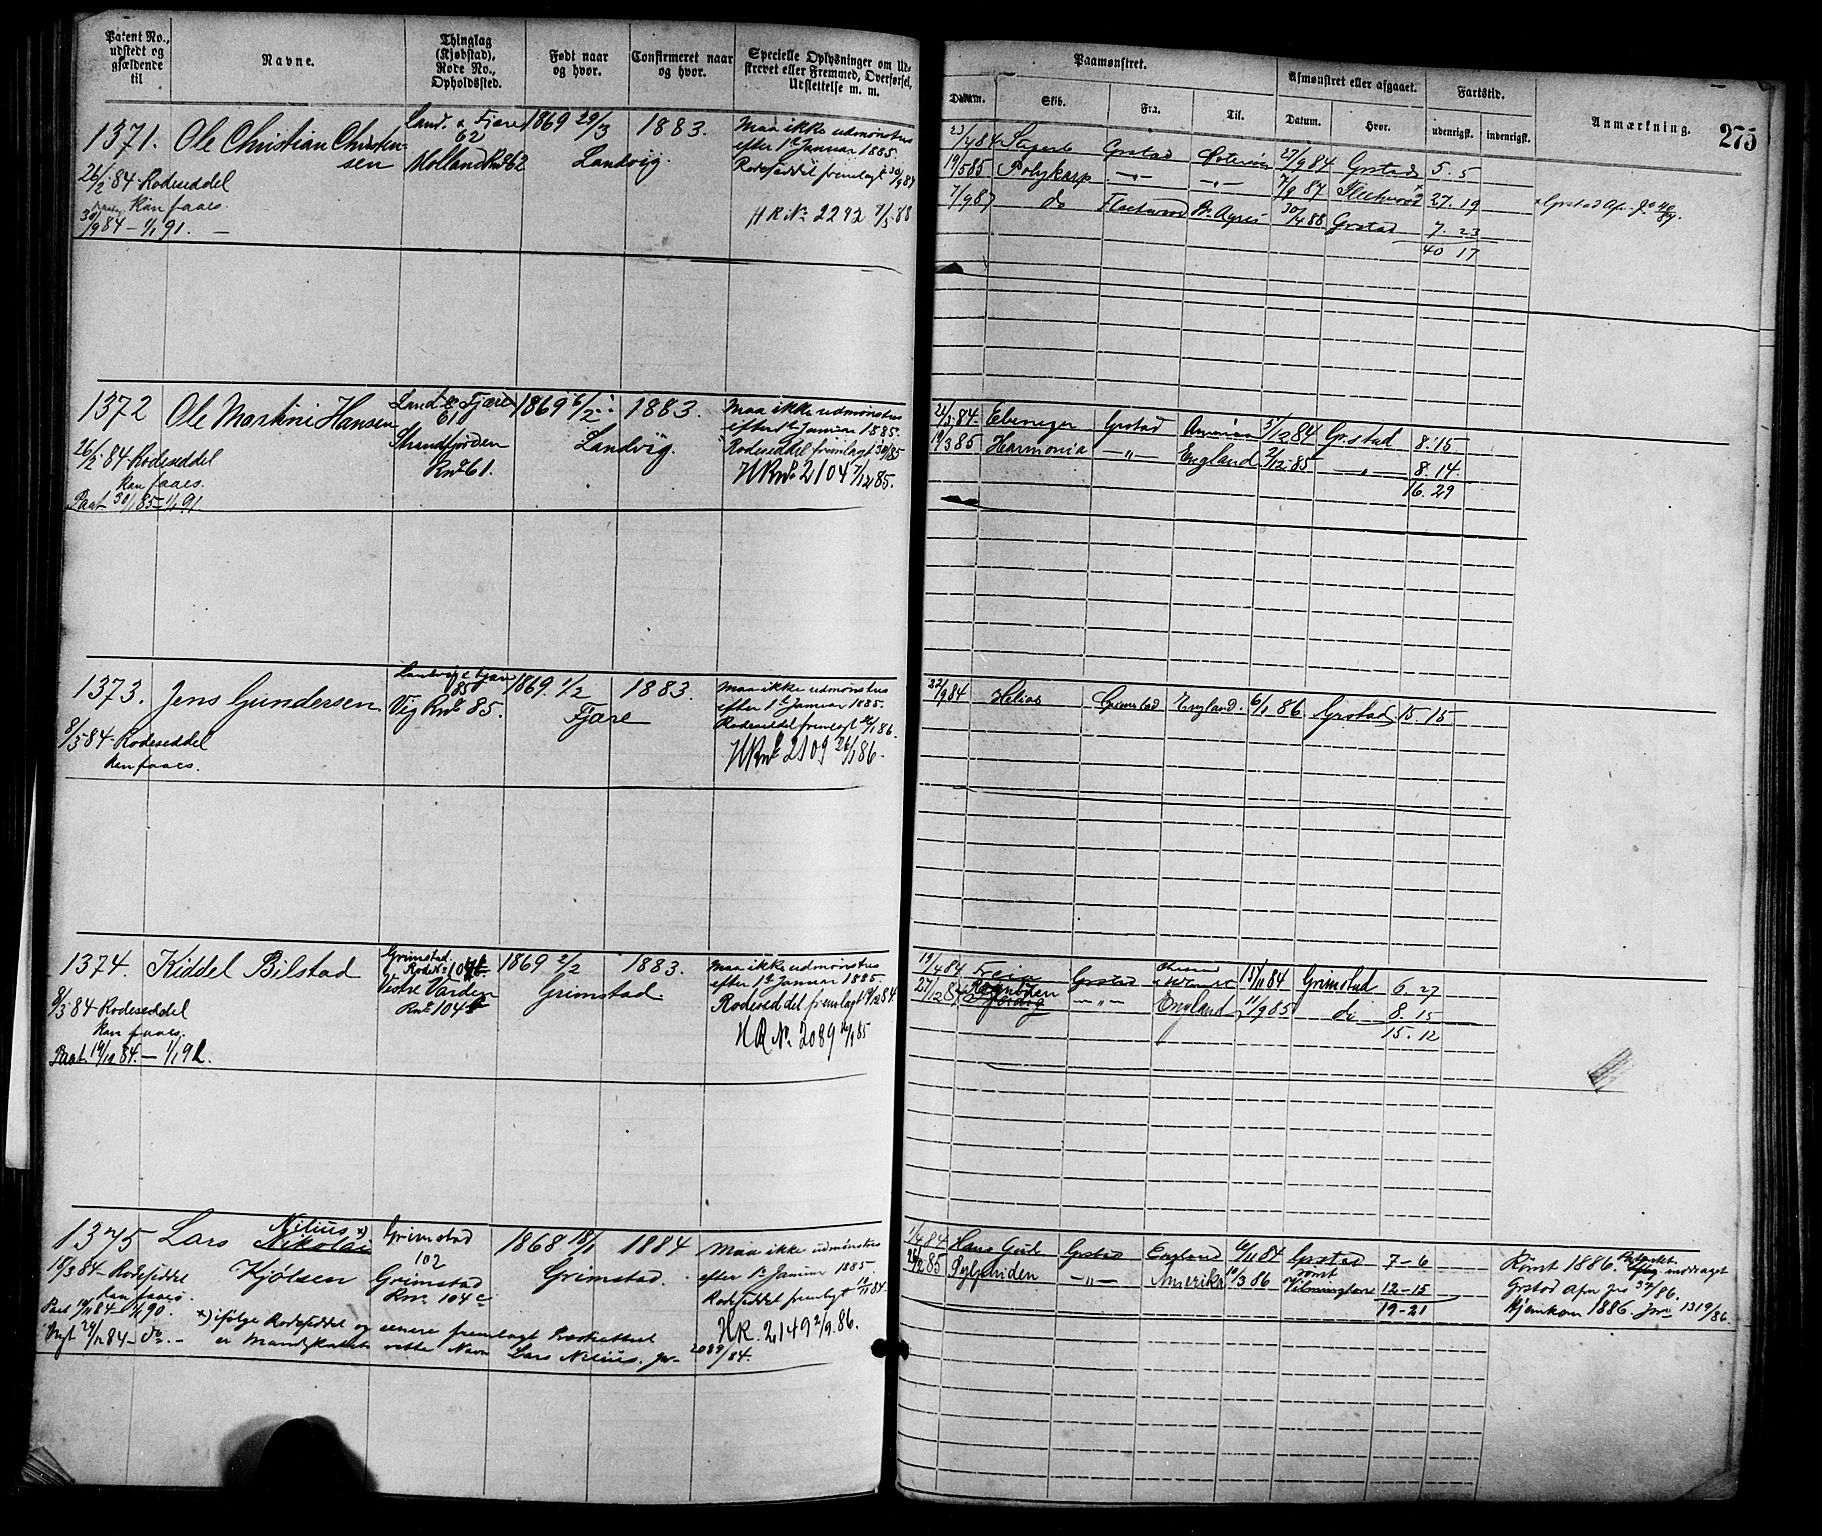 Patent No., udstedt og gjældende til
Navne.
Thinglag (Kjøbstad), Rode No., Opholdssted.
Født naar og hvor.
Confirmeret naar og hvor.
Specielle Oplysninger om Udskrevet eller Fremmed, Overførsel, Udslettelse m. m.
Paamønstret.
Afmønstret eller afgaaet.
Fartstid.
Anmærkning.
Datum.
Skib.
Fra.
Til.
Datum.
Hvor.
udenrigsk.
indenrigsk.
275
1371. Ole Christian Christen-
sen
Land. & Fjære
62
Molland Rn 62
1869 29/3 1883.
Landvig.
Maa ikke udmønstres
efter 1ste Januar 1885.
Rodeseddel fremlagt 30/9 84
H R. No 2242 7/5 88
26/2 84 Rodeseddel
kan faaes.
30/9 84 – 1/1 91. –
23/4 84 Grstad 27/9 84 Grstad 5. 5
19/5 85 Polykarp –„– –„– 7/9 87 Fleetwood 27. 19
7/9 87 do Fleetwood B. Ayres 30/4 88 Grstad 7. 23
40 17
1372 Ole Martini Hansen
Land & Fjære
61
Strandfjorden
Rn 61.
1869 6/2 1883.
Landvig.
Maa ikke udmønstres
efter 1ste Januar 1885.
Rodeseddel fremlagt 30/1 85
HRno 2104 7/12 85.
26/2 84 Rodeseddel
kan faaes.
Paat. 30/1 85 – 1/1 91
21/3 84. Ebenezer Grstad 5/12 84 Grstad 8. 15
19/3 85 Harmonia –„– England 2/12 85 –„– 8. 14.
16. 29
1373. Jens Gundersen
Landvig & Fjære
85
Vig Rno 85.
1869. 1/2 1883.
Fjære
Maa ikke udmønstres
efter 1ste Januar 1885.
Rodeseddel fremlagt /1 86.
HRno 2109 26/1 86.
8/3 84 Rodeseddel
kan faaes.
22/9 84 Helios Grimstad England. 6/1 86 Grstad 15. 15
1374. Kiddel Bilstad
Grimstad.
Rode No 104
Vestre Varden
Rn 104
1869 2/2 1883.
Grimstad.
Maa ikke udmønstres
efter 1ste Januar 1885.
Rodeseddel fremlagt 19/12 84.
H R No 2089 /9 85
8/3 84 Rodeseddel
kan faaes.
Paat. 19/12 84. – 1/1 92.
19/4 84 Freia Grstad 15/11 84 Grimstad 6. 27
27/12 84 –„– England 11/9 85 do 8. 15
15. 12
1375 Lars Nilius x)
Nikolai
Kjølsen
Grimstad
102
Grimstad
Rn 104 c
1868 18/1 1884
Grimstad.
Maa ikke udmønstres
efter 1ste Januar 1885.
Rodeseddel fremlagt 19/11 84.
HR. 2149 2/9 86.
18/3 84 Rodeseddel
kan faaes.
Paat 19/11 84 – 1/1 90.
29/12 84 – do. –
x) ifølge Rodeseddel og senere fremlagt Præsteattest
er Mandskabets rette Navn Lars Nilius. Jr 2089/84.
1/4 84 Hans Gude Grstad England /11 84 Grstad 7 – 6
26/2 85 Sylphiden –„– Amerika 10/3 86 rømt
Wilmington 12 – 15
19 – 21
Rømt 1886. inddraget
Grstad Afm Jr 37/86.
Hjemkom 1886. Jrn 1319/86